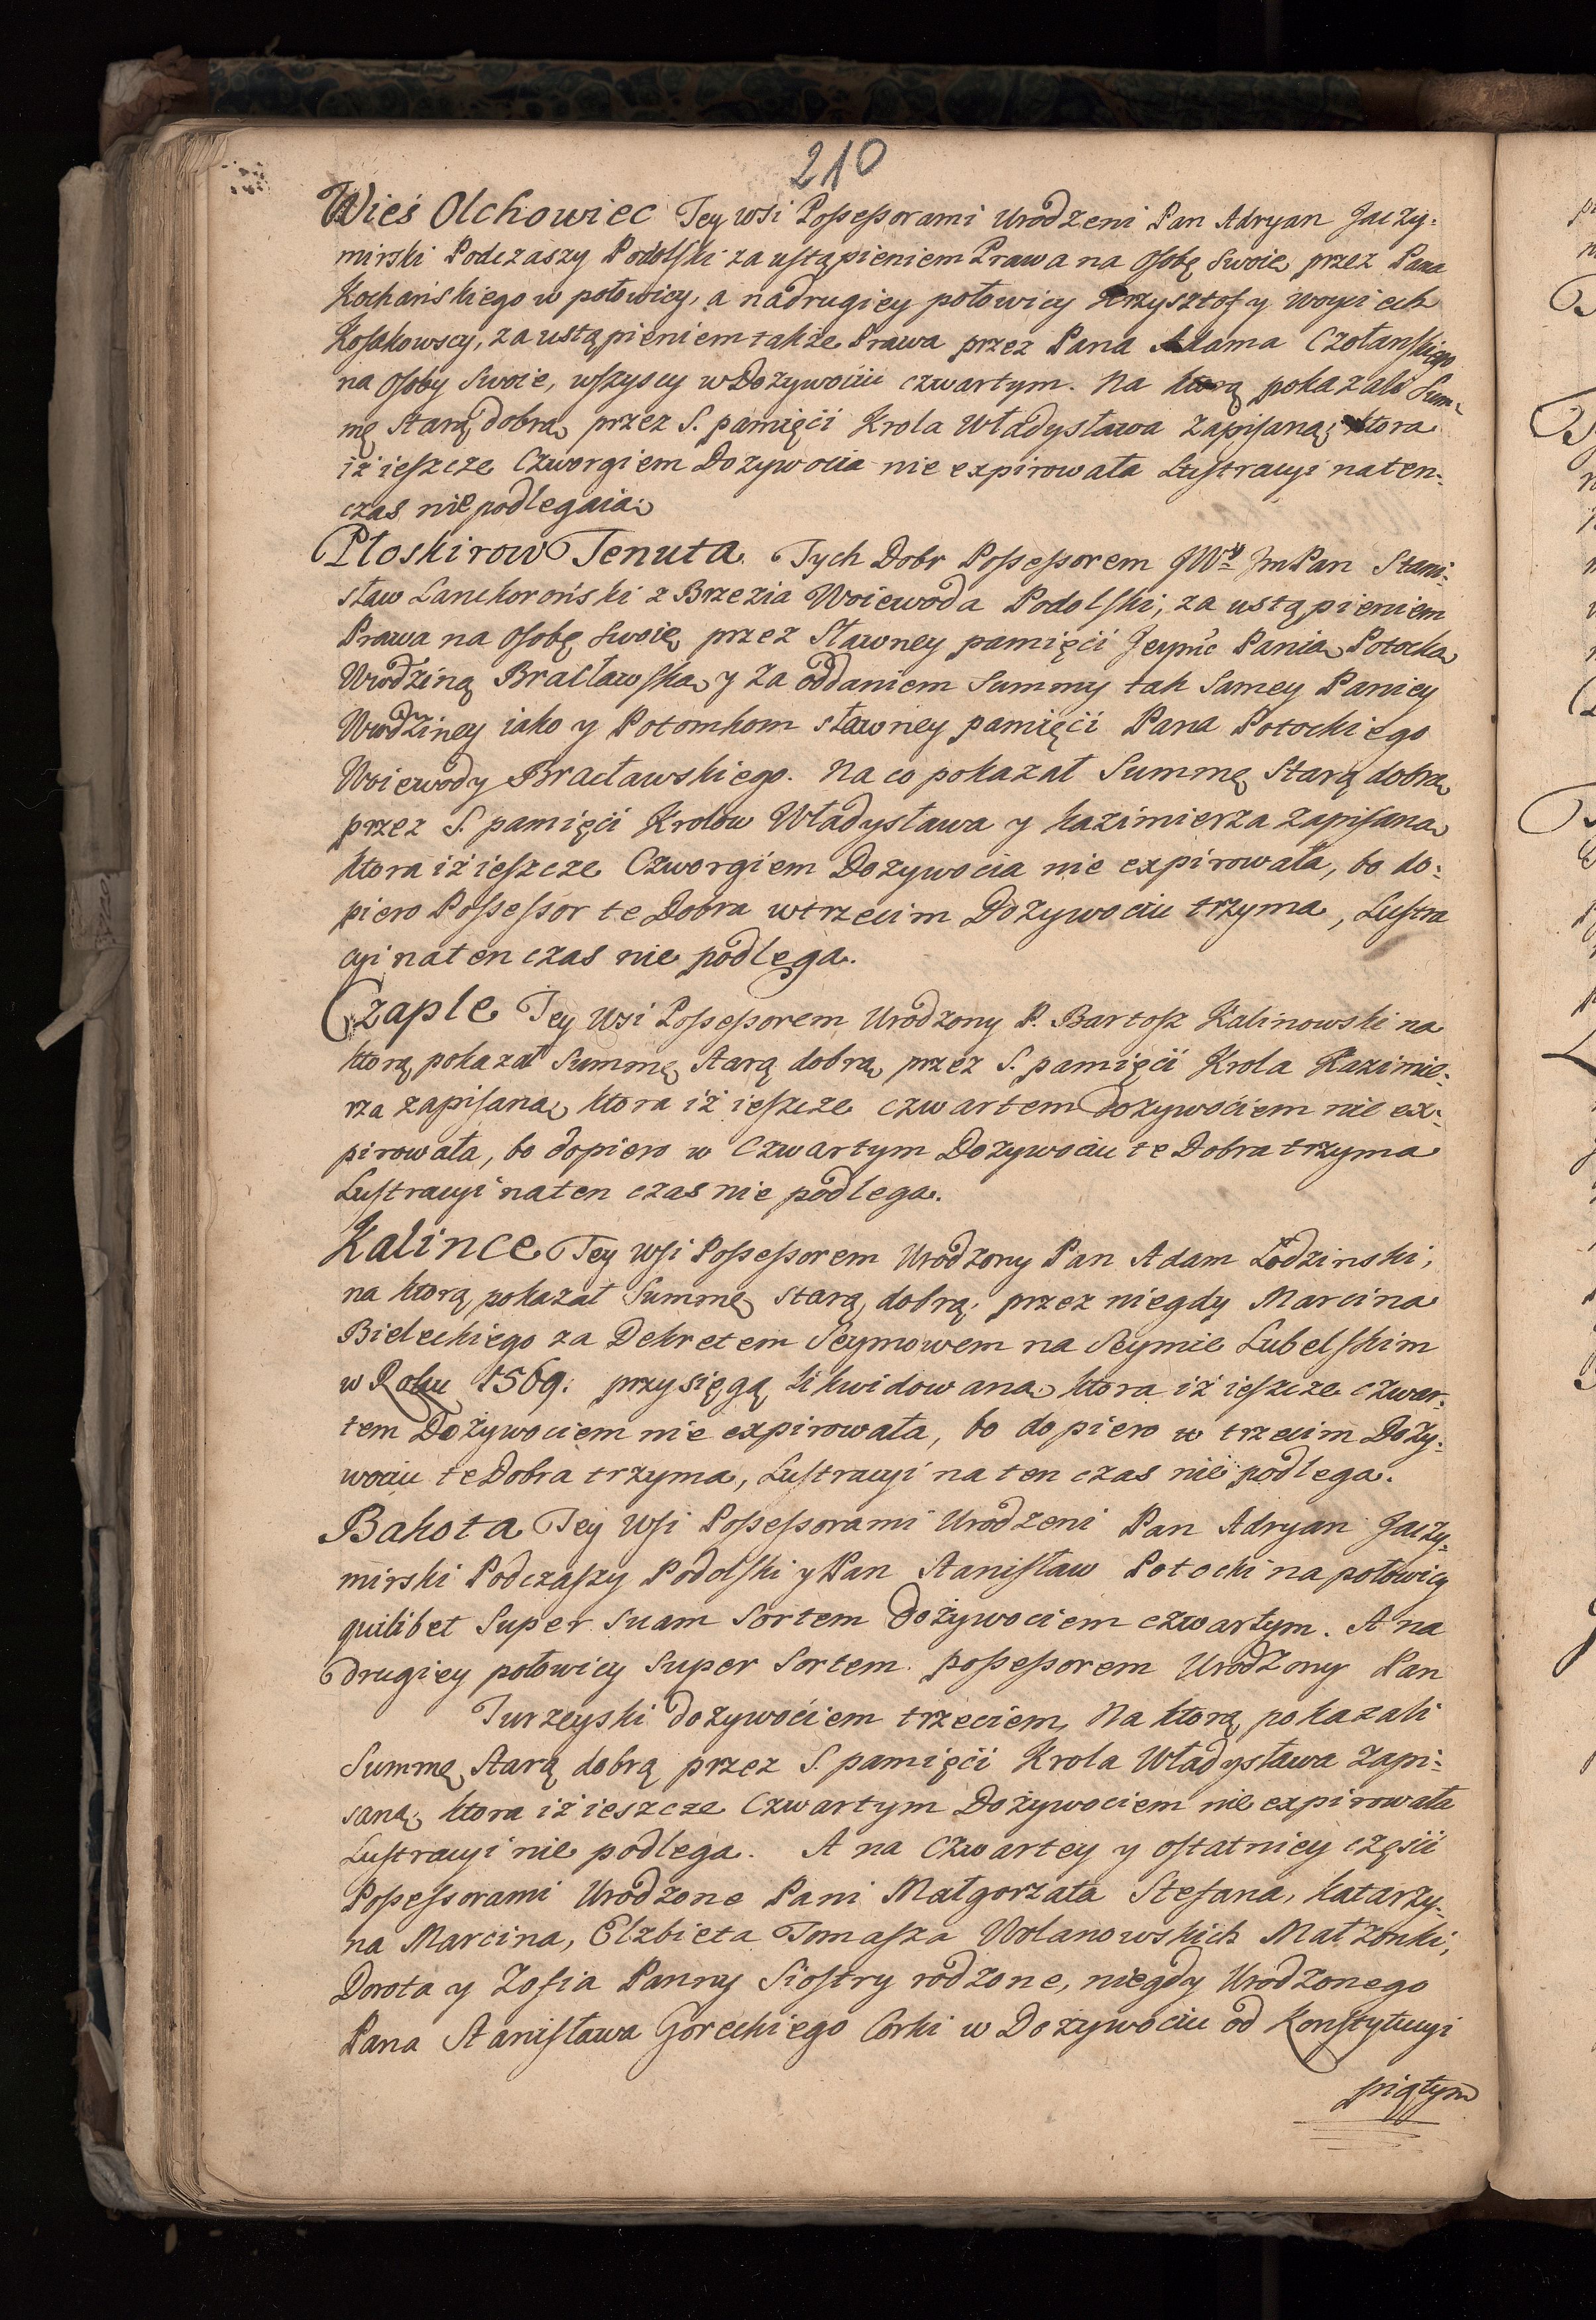 210
Wieś Olchowiec Tey wsi Possessorami Urodzeni Pan Adryan Jaczy-
mirski Podczaszy Podolski za ustąpieniem Prawa na Osobę Swoię przez Pana
Kochańskiego w połowicy, a na drugiey połowicy Krzysztof y Woyciech
Kossakowscy, za ustąpieniem także Prawa przez Pana Adama Czołanskiego
na Osoby Swoie, wszyscy w Dozywociu czwartym. Na ktorą pokazali Sum-
mę Starą dobrą przez S. pamięći Krola Władysława Zapisaną, ktora
iż ieszcze Czworgiem Dozywocia nie expirowała Lustracyi naten-
czas nie podlegaią
Płoskirow Tenuta. Tych Dobr Possessorem JWy JmPan Stani-
sław Lanckoroński z Brzezia Woiewoda Podolski, za ustąpieniem
Prawa na Osobę Swoię przez Sławney pamięći Jeymć Panią Potocką
Wrodziną Bracławską y za oddaniem Summy tak Samey Paniey
Wrodziney iako y Potomkom sławney pamięći Pana Potockiego
Woiewody Bracławskiego. Na co pokazał Summę Starą dobrą
przez S. pamięći Krolow Władysława y Kazimierza Zapisaną
ktora iż ieszcze Czworgiem Dozywocia nie expirowała, bo do-
piero Possessor te Dobra w trzecim Dozywociu trzyma, Lustra
cyi na ten czas nie podlega.
Czaple Tey Wsi Possessorem Urodzony P. Bartosz Kalinowski na
ktorą pokazał Summę Starą dobrą przez S. pamięći Krola Kazimie-
rza zapisaną ktora iż ieszcze czwartem dozywociem nie ex-
pirowała, bo dopiero w Czwartym Dozywociu te Dobra trzyma
Lustracyi na ten czas nie podlega.
Kalince Tey Wsi Possessorem Urodzony Pan Adam Łodzinski,
na ktorą pokazał Summę starą dobrą przez niegdy Marcina
Bieleckiego za Dekretem Seymowem na Seymie Lubelskim
w Roku 1569. przysięgą likwidowaną ktora iż ieszcze czwar-
tem Dożywociem nie expirowała, bo dopiero w trzecim Doży-
wociu te Dobra trzyma, Lustracyi na ten czas nie podlega.
Bakota Tey Wsi Possessorami Urodzeni Pan Adryan Jaczy-
mirski Podczaszy Podolski y Pan Stanisław Potocki na połowicy
quilibet Super Suam Sortem dożywociem czwartym. A na
drugiey połowicy Super Sortem possessorem Urodzony Pan
Turzeyski dozywoćiem trzeciem, Na ktorą pokazali
Summę Starą dobrą przez S. pamięći Krola Władysława Zapi-
saną, ktora iż ieszcze Czwartym Dożywociem nie expirowała
Lustracyi nie podlega. A na Czwartey y ostatniey częśii
Possessorami Urodzone Pani Małgorzata Stefana, Katarzy-
na Marcina, Elzbieta Tomasza Wolanowskich Małżonki,
Dorota y Zofia Panny Siostry rodzone, niegdy Urodzonego
Pana Stanisława Goreckiego Corki w Dozywociu od Konstytucyi
piątym